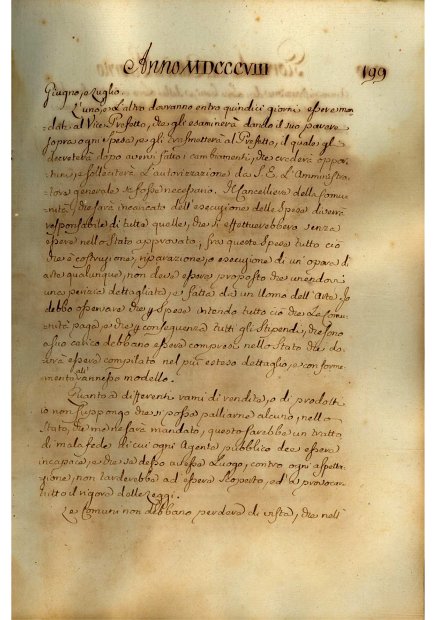 Anno MDCCCVIII
199
Giugno, e Luglio.
L'uno, e l'altro dovranno entro quindici giorni essere man-
dati al Vice-Prefetto, che gli esaminerà dando il suo parere
sopra ogni spesa, e gli trasmetterà al Prefetto, il quale gl
decreterà dopo avervi fatto i cambiamenti, che crederà oppor-
tuni, e solleciterà l'autorizazione da S. E. L'Amministra-
tore generale se fosse necessario. Il Cancelliere della Comu-
nità, che sarà incaricato dell'esecuzione delle Spese diverrà
responsabile di tutte quelle, che si effettuerebbero senza
essere nello Stato approvato; fra queste Spese tutto ciò
che è costruzione, riparazione, o esecuzione di un'opera di
arte qualunque, non deve essere proposto che unendovi
una perizia dettagliata, e fatta da un Uomo dell'Arte. Io
debbo osservare che p Spese intendo tutto ciò che la Comu-
nità paga, e che p conseguenza tutti gli Stipendi, che sono
a suo carico debbano essere compresi nello Stato che do-
vrà essere compilato nel più esteso dettaglio, e conforme-
mento all'annesso modello.
Quanto a differenti rami di vendite, o di prodotti
io non suppongo che si possa palliarne alcuno, nello
Stato, che me ne sarà mandato, questo sarebbe un tratto
di mala fede di cui ogni Agente pubblico deve essere
incapace, e che se desse avesse Luogo, contro ogni aspetta-
zione, non tarderebbe ad essere scoperto, ed a provocar
tutto il rigore delle Leggi.
Le Comuni non debbano perdere di vista, che nell'